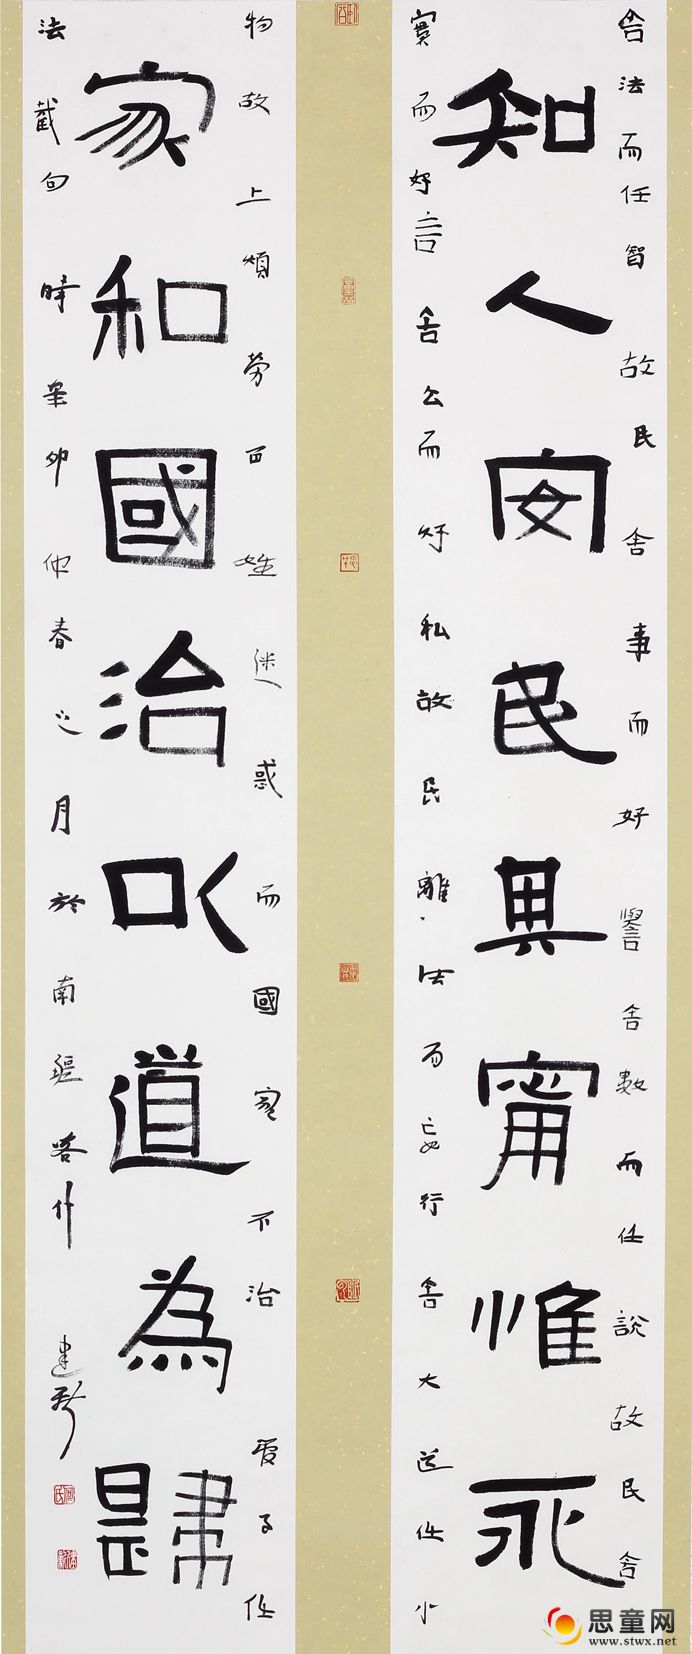 舍法而任智故民舍事而好譽舍數而任說故民舍
知人安民其甯惟永
實而好言舍公而好私故民離法而妄行舍大道任小
物故上煩勞百姓迷惑而國家不治管子任
家和國治以道為
法截句時辛卯仲春之月於南疆喀什建新
思童网
www.stwx.net